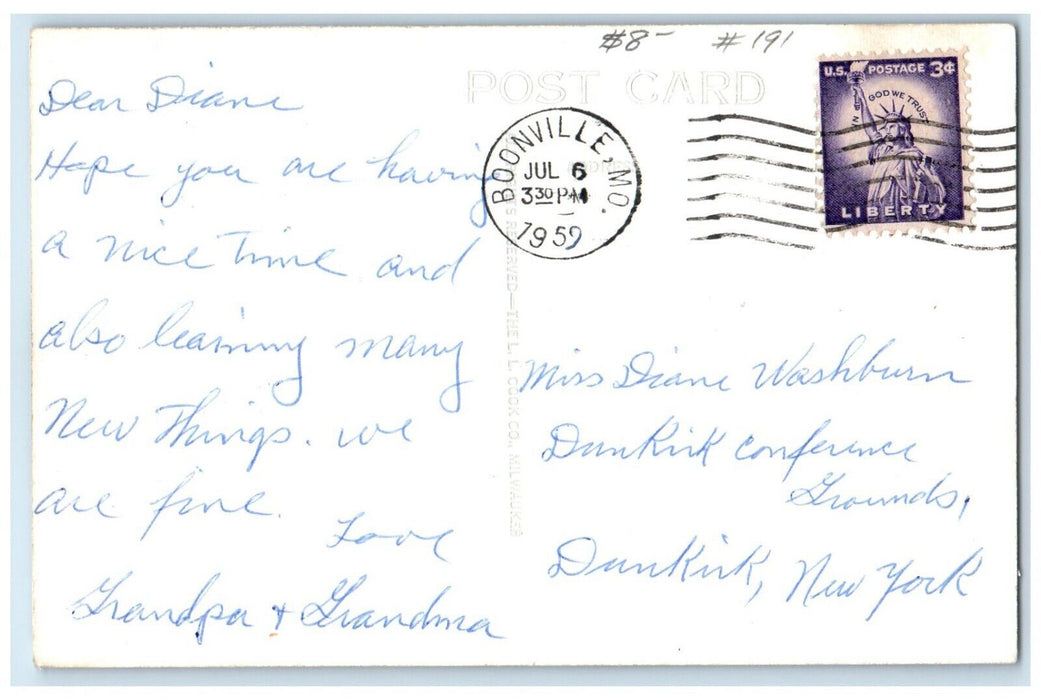 $8- #191
POST CARD
Dear Diane
Hope you are having
a nice time and
also learning many
New Things. we
are fine.
Love
Grandpa & Grandma
BOONVILLE, MO.
JUL 6
3 30 PM
1959
U.S. POSTAGE 3¢
IN GOD WE TRUST
LIBERTY
RESERVED—THE L. L. COOK CO., MILWAUKEE
Miss Diane Washburn
DunKirk conference
Grounds,
DunKirk, New York